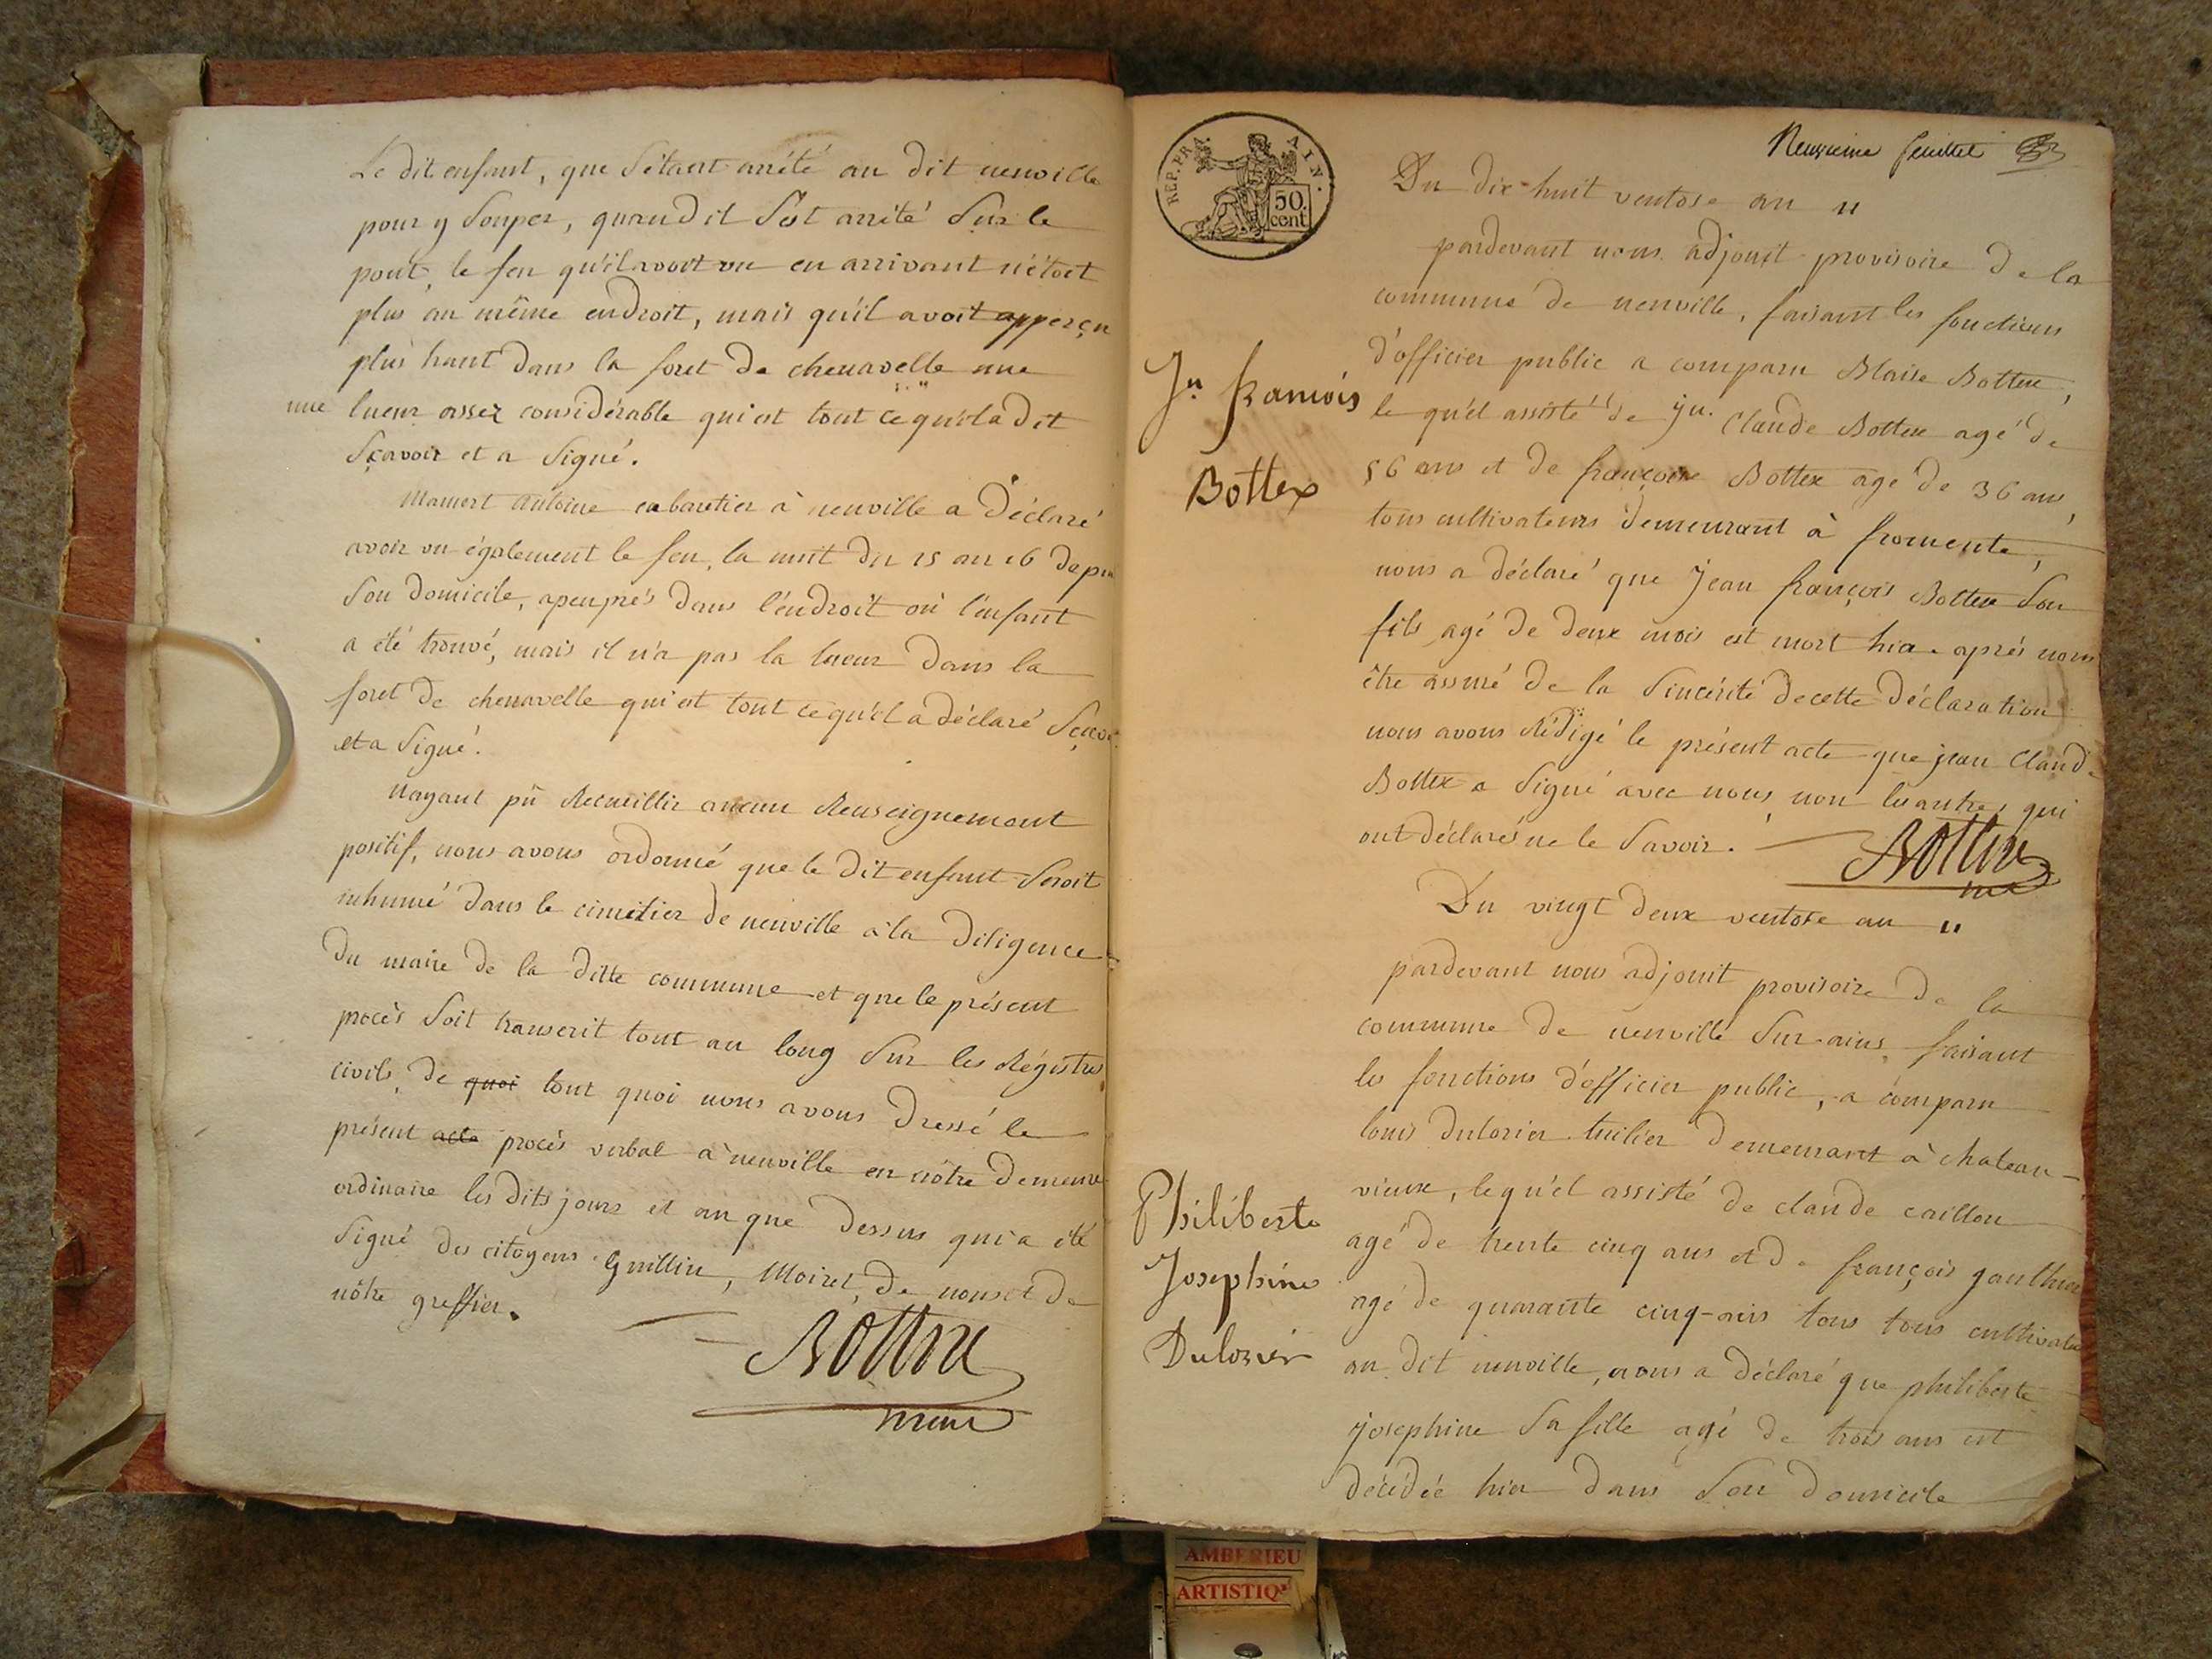 Le dit enfant, que s'étant arrêté au dit neuville
pour y souper, quand il s'est arrêté sur le
pont, le feu qu'il avoit vu en arrivant n'étoit
plus au même endroit, mais qu'il avoit apperçu
plus haut dans la foret de chenavelle une
une lueur assez considérable qui est tout ce qu'il a dit
sçavoir et a signé.
Mamert Antoine cabaretier à neuville a déclaré
avoir vu également le feu, la nuit du 15 au 16 depui
son domicile, apeuprés dans l'endroit où l'enfant
a été trouvé, mais il n'a pas la lueur dans la
foret de chenavelle qui est tout ce qu'il a déclaré sçavoi
et a signé.
Nayant pû Recueillir aucun Renseignement
positif, nous avons ordonné que le dit enfant seroit
inhumé dans le cimetier de neuville à la diligence
du maire de la ditte commune et que le présent
procès soit transcrit tout au long sur les Régistres
civils, de quoi tout quoi nous avons dressé le
présent acte procès verbal à neuville en nôtre demeure
ordinaire les dits jours et an que dessus qui a été
signé des citoyens Guillin, Moiret, de nous et de
nôtre greffier.
Bottex
maire
REP. FRA. AIN.
50.
cent
Neuvieme feuillet
Du dix-huit ventose an 11
pardevant nous adjouit provisoire de la
commune de neuville, faisant les fonctions
d'officier public a comparu Blaise Bottex,
le qu'el assisté de jn. Claude Bottex agé de
56 ans et de françois Bottex age de 36 ans,
tous cultivateurs demeurant à fromente,
nous a déclaré que Jean françois Bottex son
fils agé de deux mois est mort hier. aprés nous
être assuré de la sincérité de cette déclaration
nous avons Rédigé le présent acte que jean Claude
Bottex a signé avec nous, non les autres qui
ont déclarés ne le savoir.
Bottex
Jn. francois
Bottex
Du vingt deux ventose an 11
pardevant nous adjouit provisoire de la
commune de neuville sur-ains, faisant
les fonctions d'officier public, a comparu
louis dulorier tuilier demeurant à chateau-
vieux, lequ'el assisté de claude caillou
agé de trente cinq ans et de françois gauthier
agé de quarante cinq-ans tous tous cultivateu
au dit neuville, nous a déclaré que philiberte
josephine sa fille agé de trois ans est
décédée hier dans son domicile
Philiberte
Josephine
Dulorier
AMBERIEU
ARTISTIQ